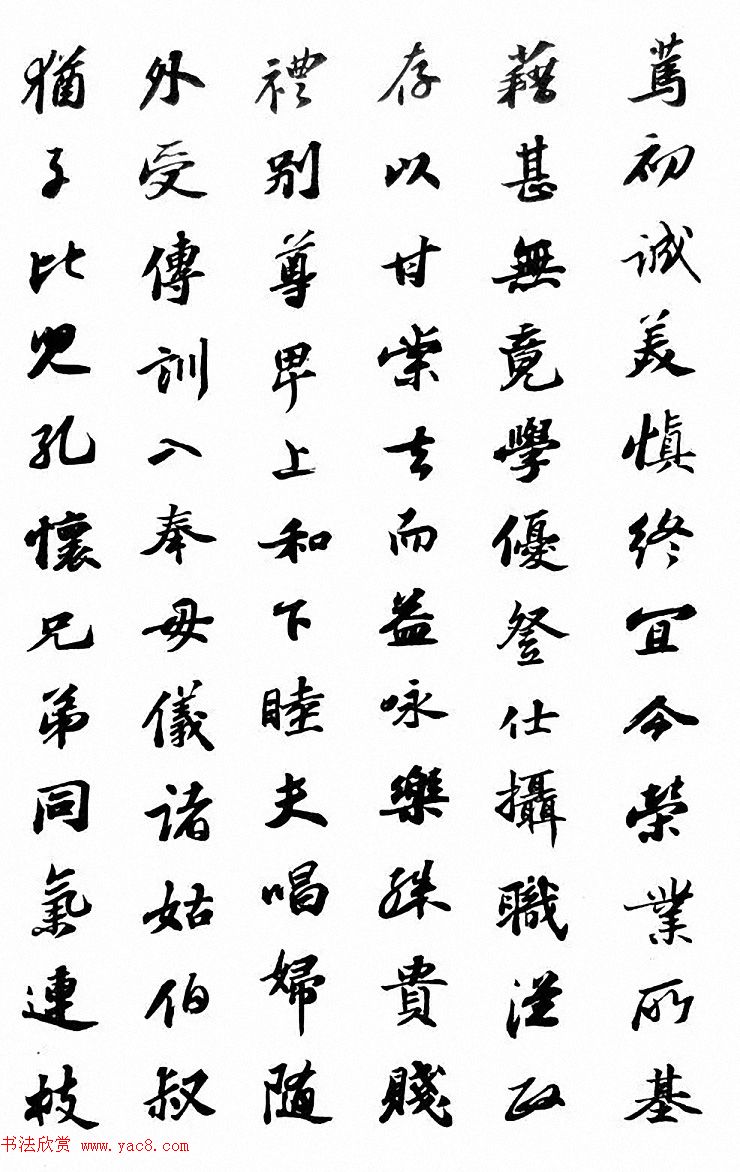 篤初誠美慎終宜令榮業所基
藉甚無竟學優登仕攝職從政
存以甘棠去而益咏樂殊貴賤
禮别尊卑上和下睦夫唱婦随
外受傅訓入奉母儀諸姑伯叔
猶子比兒孔懷兄弟同氣連枝
书法欣赏 www.yac8.com